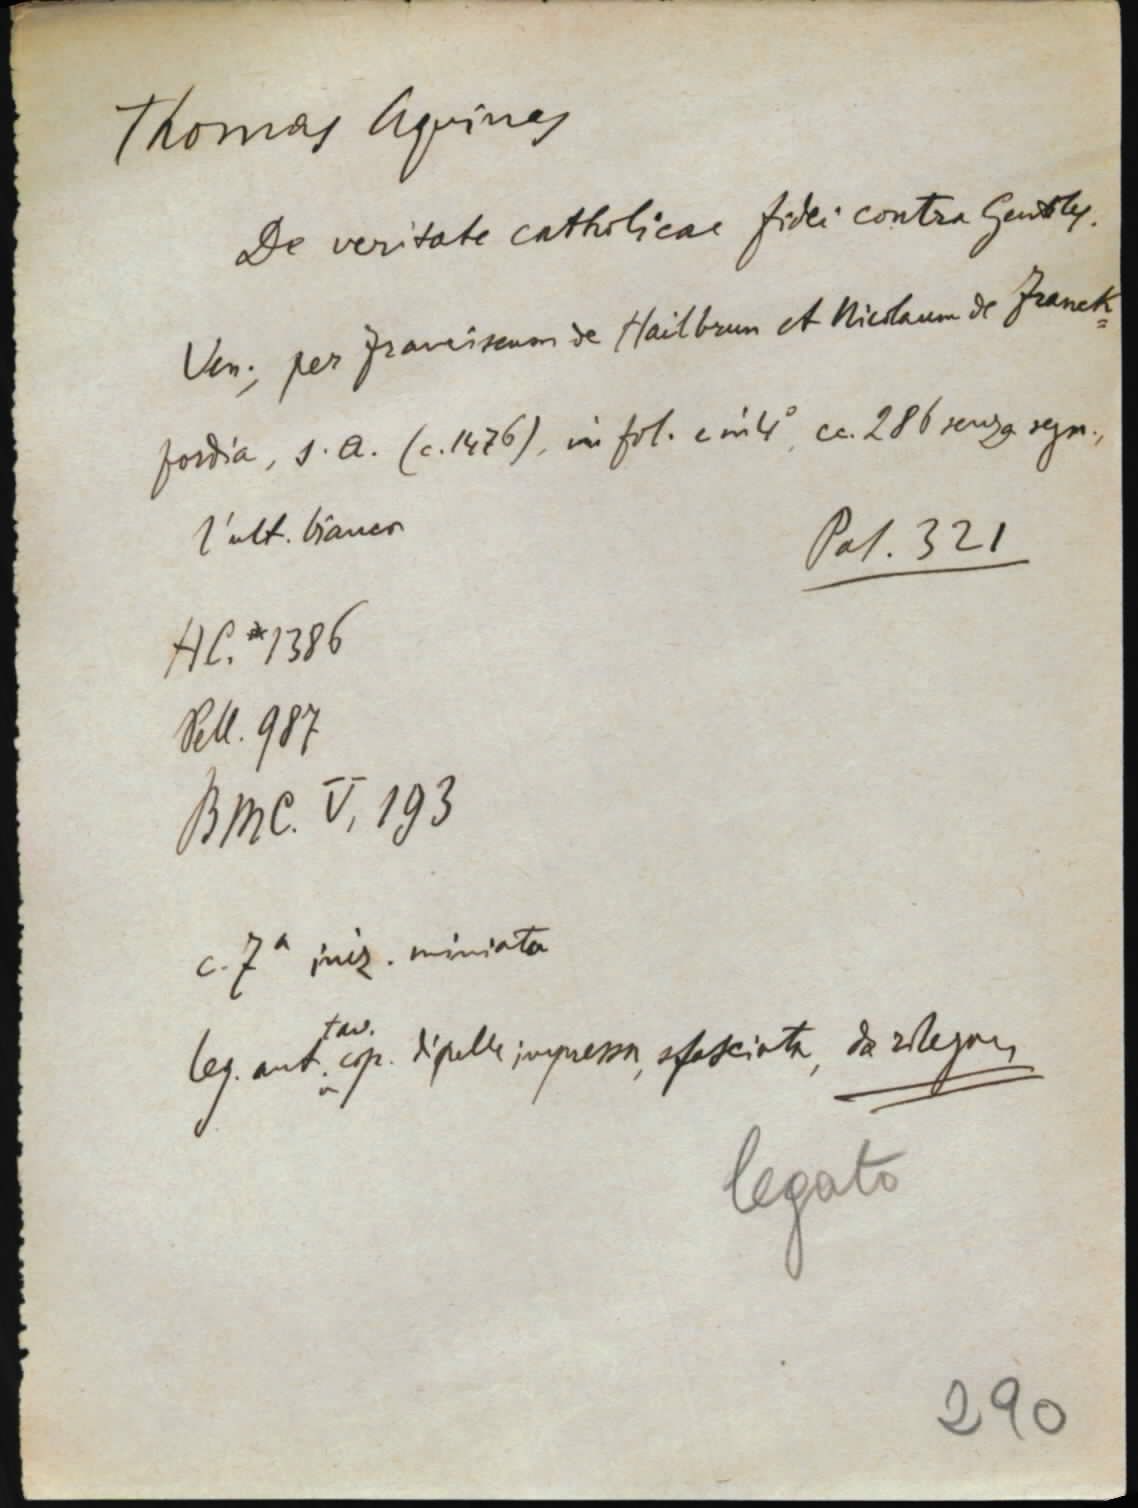 Thomas Aquinas
De veritate catholicae fidei contra Gentiles.
Ven., per Franciscum de Hailbrun et Nicolaum de Franck=
fordia, s. a. (c. 1476), in fol. e in 4°, cc. 286 senza segn.,
l'ult. bianca
Pal. 321
HC. *1386
Pell. 987
BMC. V, 193
c. 7ª iniz. miniata
leg. ant. tav. cop. di pelle impressa, sfasciata, da rilegare
legato
290